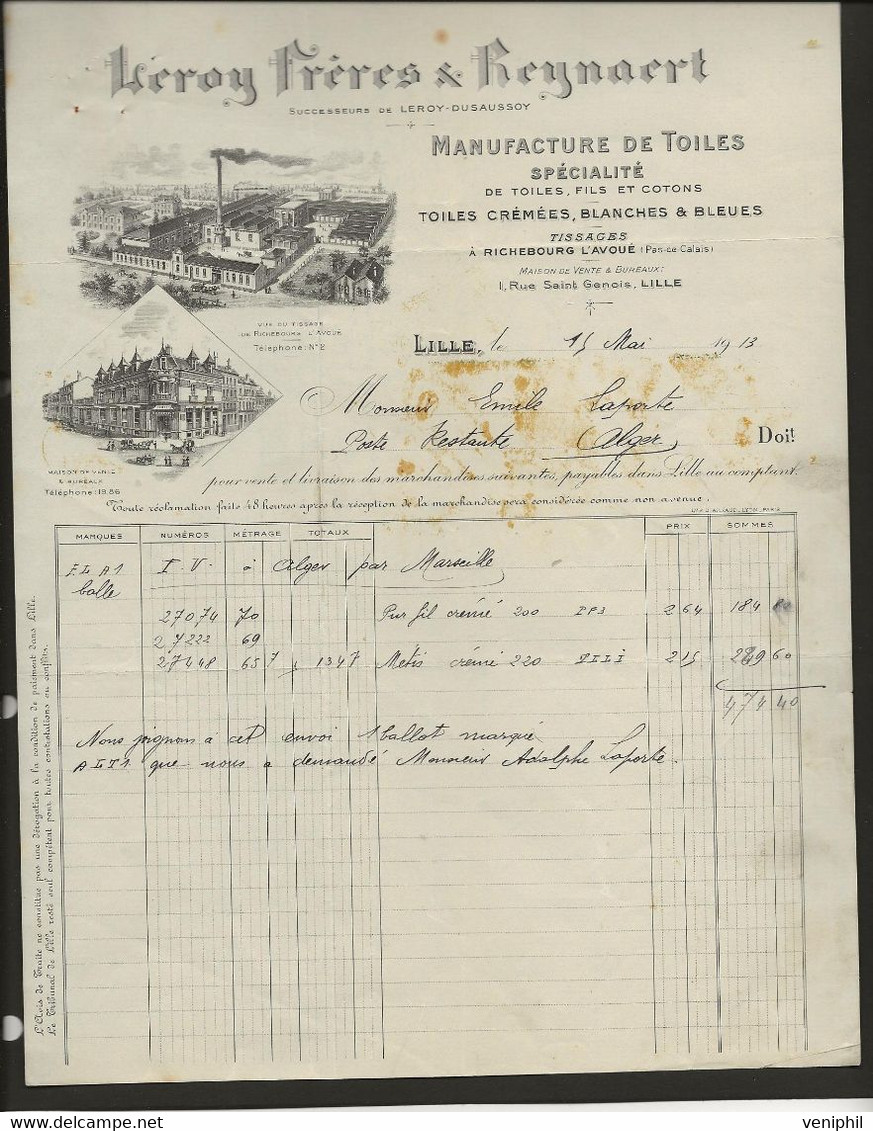 Leroy Frères & Reynaert
SUCCESSEURS DE LEROY-DUSAUSSOY
MANUFACTURE DE TOILES
SPÉCIALITÉ
DE TOILES, FILS ET COTONS
TOILES CRÉMÉES, BLANCHES & BLEUES
TISSAGES
À RICHEBOURG L'AVOUÉ (Pas-de-Calais)
MAISON DE VENTE & BUREAUX:
1, Rue Saint Genois, LILLE
VUE DU TISSAGE
DE RICHEBOURG L'AVOUÉ
Téléphone: N°2
LILLE, le 15 Mai 1913
Monsieur Emile Laporte
Poste Restante Alger, Doit
MAISON DE VENTE
& BUREAUX
Téléphone: 19.86
pour vente et livraison des marchandises suivantes, payables dans Lille au comptant.
Toute réclamation faite 48 heures après la réception de la marchandise sera considérée comme non avenue.
MARQUES NUMÉROS MÉTRAGE TOTAUX PRIX SOMMES
ELA1 I.V. à Alger par Marseille
balle
27074 70 Pur fil crémé 200 2 64 184 80
27222 69
27448 65 7 134 7 Metis crémé 220 2 15 289 60
474 40
Nous joignons à cet envoi 1 ballot marqué
ALT1 que nous a demandé Monsieur Adolphe Laporte.
L'Avis de Traite ne constitue pas une dérogation à la condition de paiement dans Lille.
Le Tribunal de Lille resté seul compétent pour toutes contestations ou conflits.
veniphil